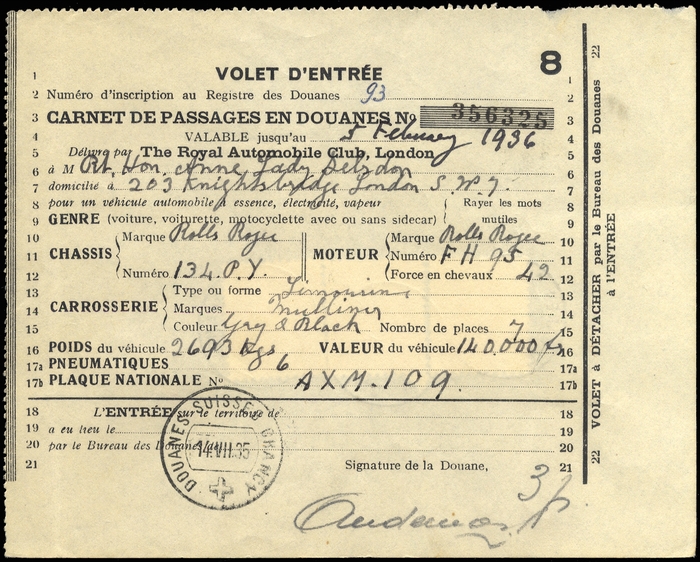 VOLET D'ENTRÉE
8
1
1
2 Numéro d'inscription au Registre des Douanes 93 2
3 CARNET DE PASSAGES EN DOUANES No 356325 3
4 VALABLE jusqu'au 5 February 1936 4
5 Délivré par The Royal Automobile Club, London 5
6 à M Rt. Hon. Anne Lady 6
7 domicilié à 203 Knightsbridge London S.W.7. 7
8 pour un véhicule automobile à essence, électricité, vapeur Rayer les mots 8
9 GENRE (voiture, voiturette, motocyclette avec ou sans sidecar) inutiles 9
10 Marque Rolls Royce Marque Rolls Royce 10
11 CHASSIS MOTEUR Numéro FH 95 11
12 Numéro 134.P.Y. Force en chevaux 42 12
13 Type ou forme Limousine 13
14 CARROSSERIE Marques Mulliner 14
15 Couleur Grey & Black Nombre de places 7 15
16 POIDS du véhicule 2693 kgs VALEUR du véhicule 140,000 frs 16
17a PNEUMATIQUES 6 17a
17b PLAQUE NATIONALE No AXM.109. 17b
18 L'ENTRÉE sur le territoire de 18
19 a eu lieu le 19
20 par le Bureau des Douanes de 20
21 Signature de la Douane, 21
DOUANES SUISSES
14.VII.35
3
22 VOLET à DÉTACHER par le Bureau des Douanes 22
à l'ENTRÉE